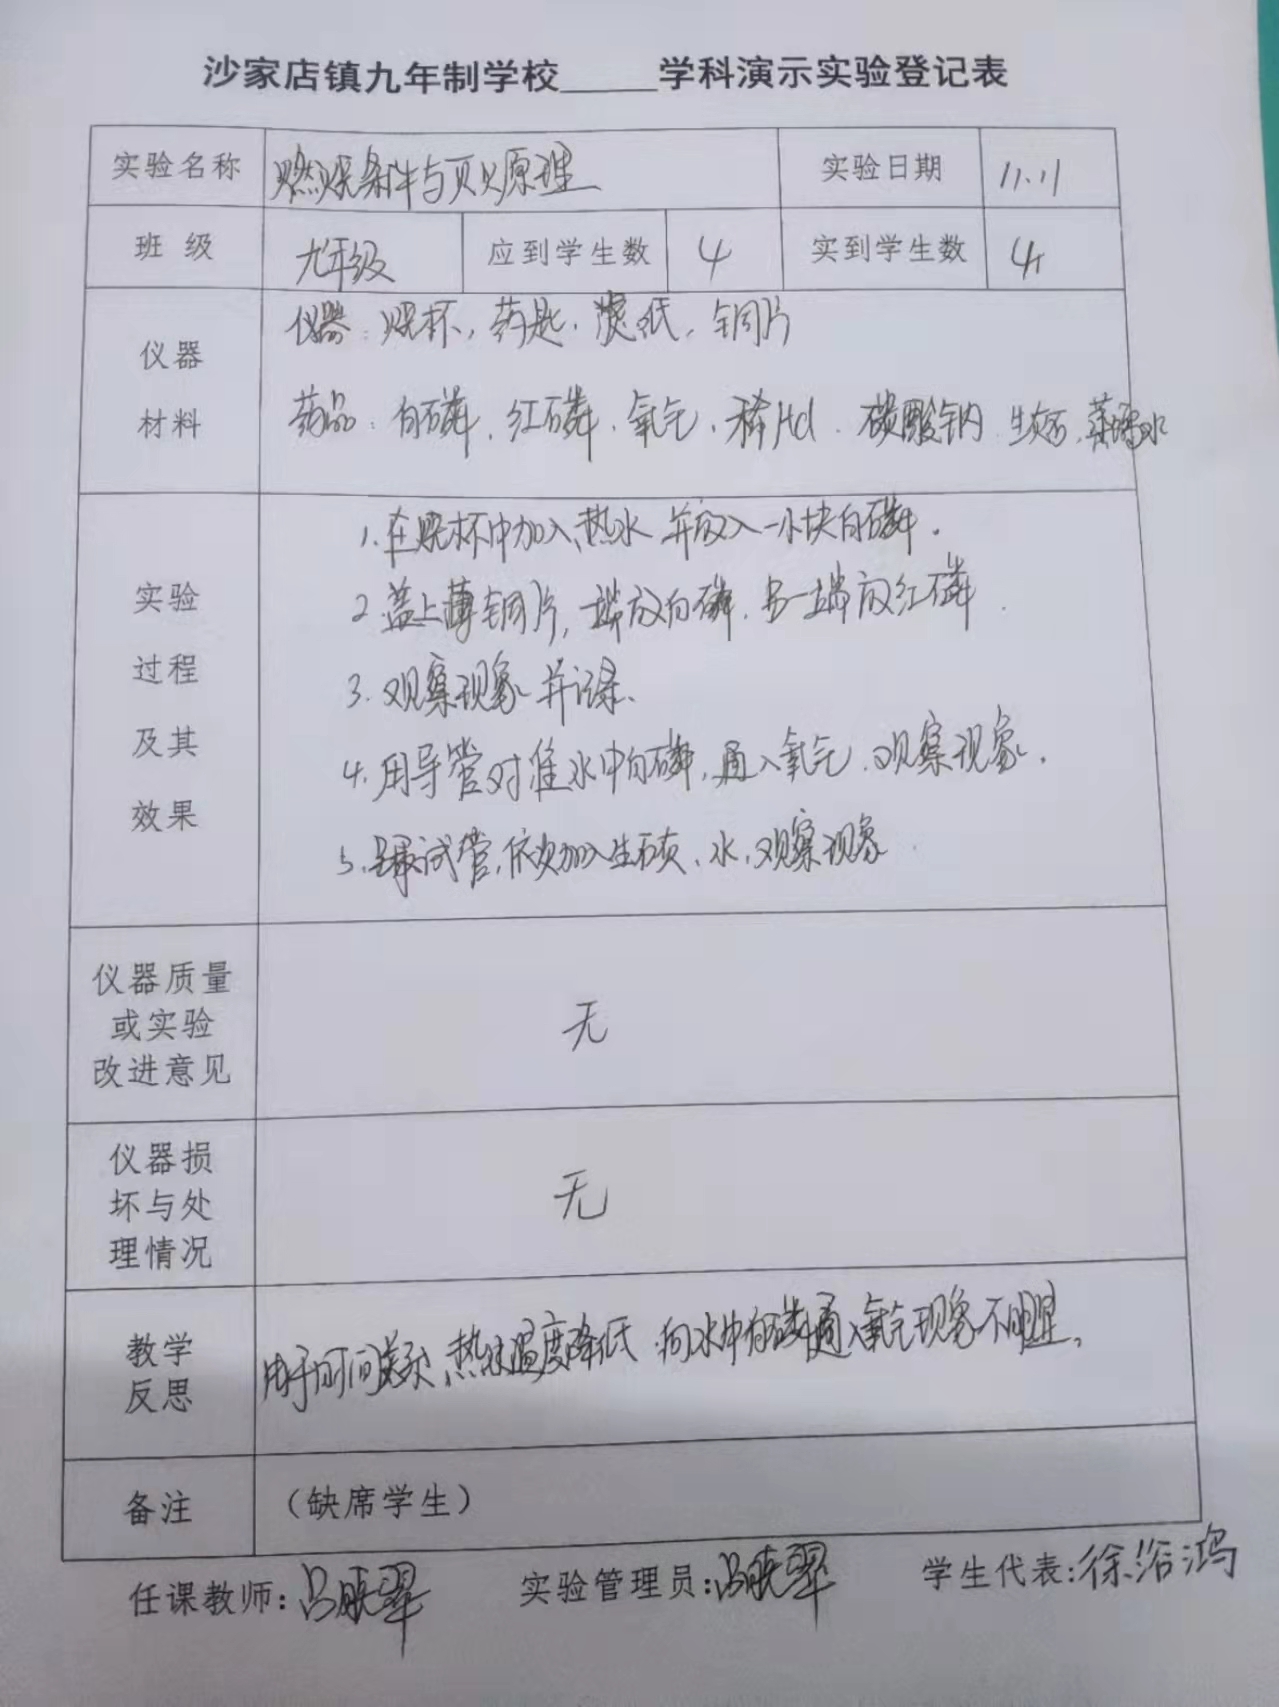 沙家店镇九年制学校_____学科演示实验登记表
实验名称 燃烧条件与灭火原理 实验日期 11.11
班 级 九年级 应到学生数 4 实到学生数 4
仪器 材料
仪器：烧杯，药匙，滤纸，铜片
药品：白磷、红磷、氧气、稀Hcl、碳酸钠、生石灰、蒸馏水
实验 过程 及其 效果
1.在烧杯中加入热水并放入一小块白磷.
2.盖上薄铜片，一端放白磷，另一端放红磷.
3.观察现象并记录.
4.用导管对准水中白磷，通入氧气.观察现象.
5.试管，依次加入生石灰、水，观察现象
仪器质量
或实验
改进意见
无
仪器损
坏与处
理情况
无
教学
反思
由于时间，热水温度降低，向水中白磷通入氧气现象不明显.
备注 （缺席学生）
任课教师： 实验管理员： 学生代表：徐浴鸿